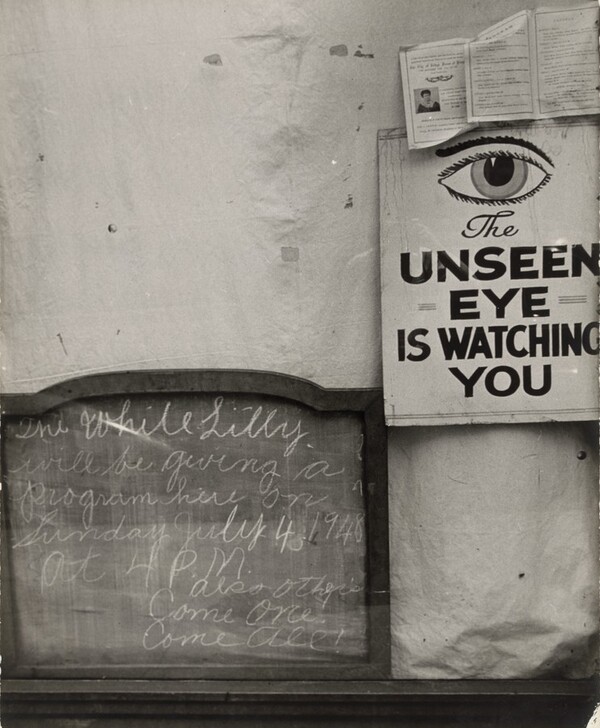 PROGRAM
The
UNSEEN
EYE
IS WATCHING
YOU
The White Lilly.
will be giving a
Program here on
Sunday July 4, 1948
At 4 P.M.
also others
Come One.
Come All!